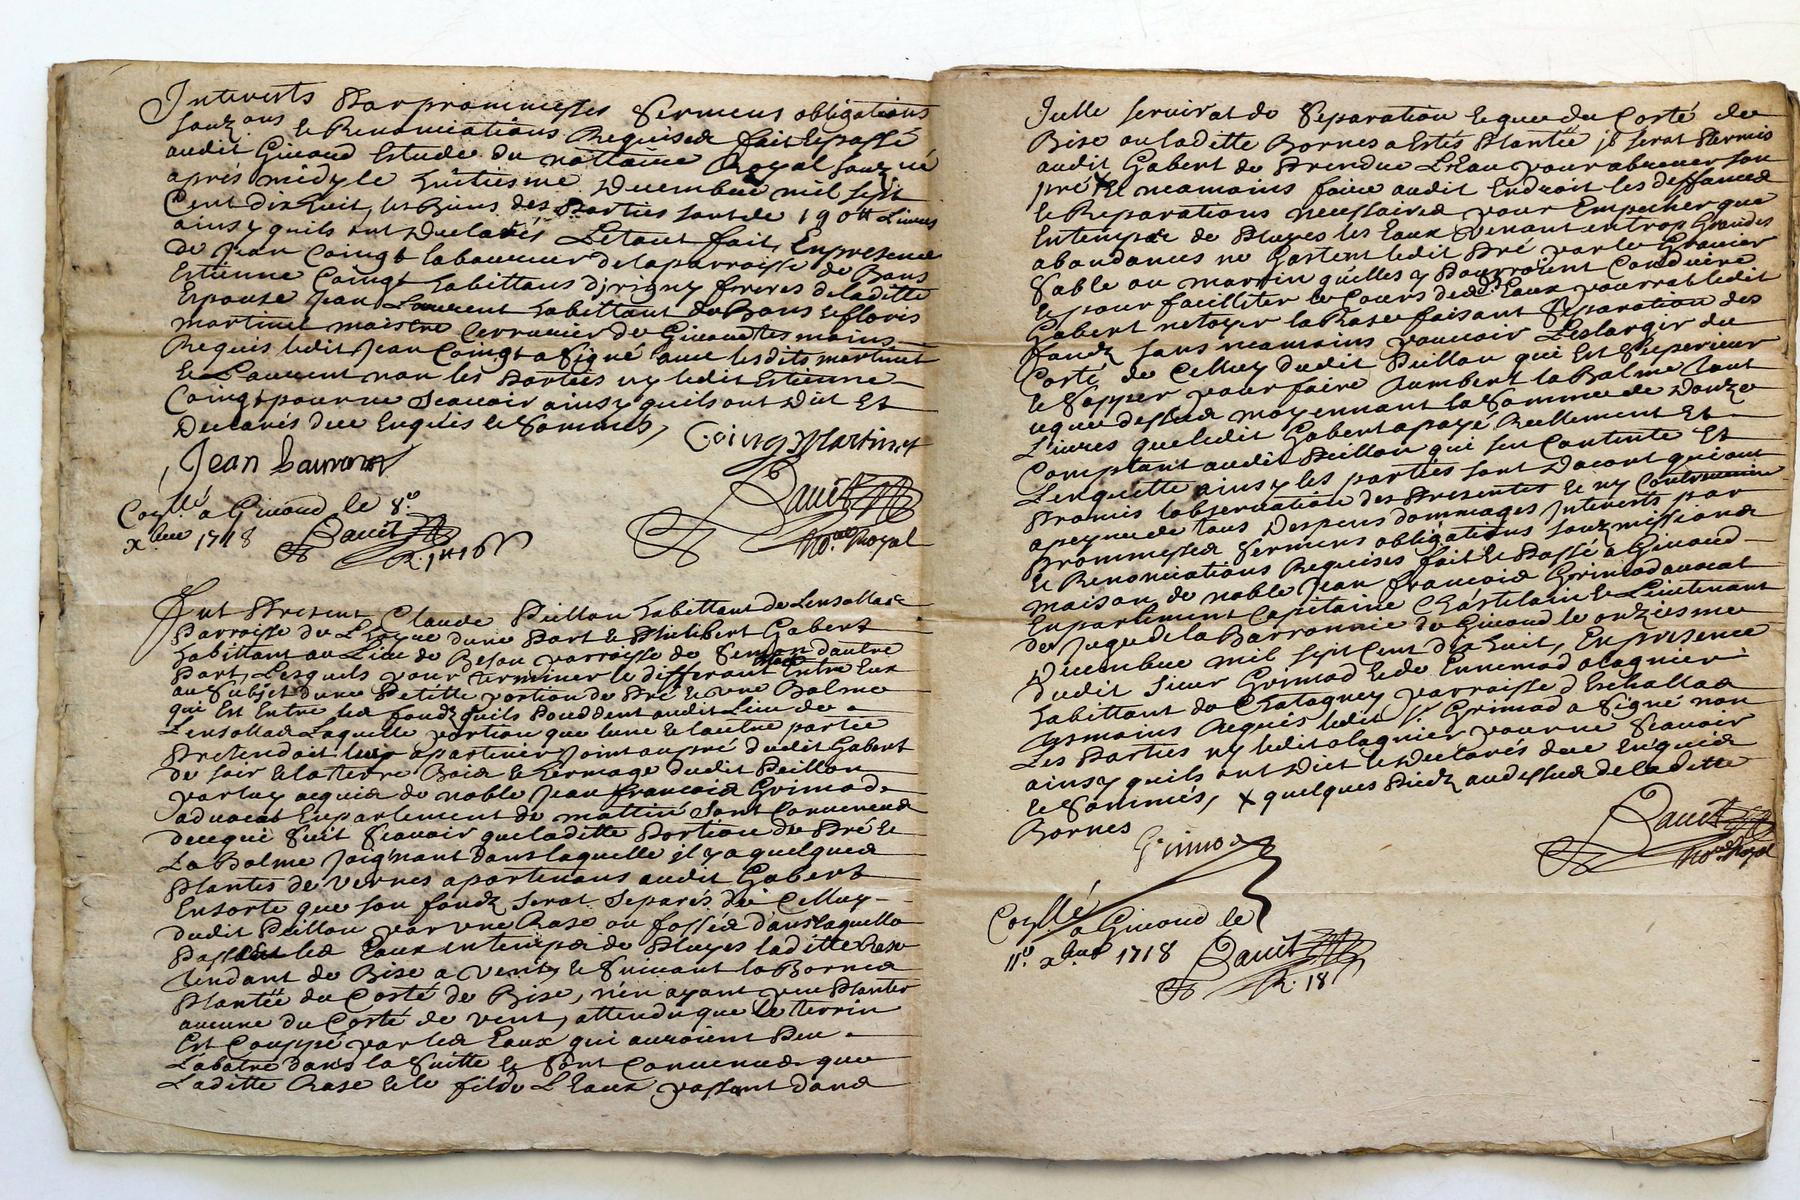 Interests Par prommesses Sermens obligations
souz ons & Renonciations Requises fait & passé
audit Giuaud Estude du nottaire Royal souz né
aprés midy le huitiesme Decembre mil sept
Cent dix huit, les Biens des Parties sont de 190tt Liures
ainsy quils ont Declarés Letout fait, En presence
de Jean Coingt laboureur de la parroisse de Bans
Estienne Coingt habittans dirigny freres de laditte
Epouse Jean Laurent habittant de Bans & floris
martinet maistre Cerrurier de Giuaud tesmoins
Requis ledit Jean Coingt a Signé auec lesdits martinet
& Laurent non les Parties ny ledit Estienne
Coingt pour ne Scauoir ainsy quils ont Dit Et
Declarés de ce Enquis & Sommés,
Coing Martinet
Jean Laurant
Dauit
No.re Royal
Con.llé a Giuaud le 8.e
x.bre 1718 Dauit
Fut Present Claude Peillon habittant de Lensollase
Parroisse du L'hogue dune Part & Philibert Gabert
habittant au Lieu de Besau parroisse de Semon dautre
Part, Lesquels pour terminer le differant Entre Eux
au Subjet dune Petitte portion de Pré & vne Balme
qui Est Entre les fondz quils Possedent audit Lieu de
Lensollas Laquelle portion que lune & lautre partie
Pretendoit luy apartenir Joint au pré dudit Gabert
de soir & la terre Bois & hermage dudit Peillon
par luy acquis de noble Jean francois Grimod
aduocat En parlement de mattin Sont Conuenus
de ce qui Suit Scauoir que laditte Portion de Pré &
La Balme Joignant dans laquelle il y a quelques
Plantes de Vernes apartenans audit Gabert
En sorte que son fondz Serat Separés de Celluy
dudit Peillon par vne Rase ou fossés dans laquelle
Passent les Eaux en temps de Pluyes laditte Rase
tendant de Bise a vent, & Suiuant la Borne
Plantée du Costé de Bise, n'en ayant peu Planter
aucune du Costé de vent, attendu que le terrin
Est Couppé par les Eaux qui auroient Peu
L'abatre dans la Suitte & Sont Conuenus que
Laditte Rase & le fil de L'Eaux passant dans
Icelle seruirat de Separation & que du Costé de
Bise ou laditte Bornes a Estés Plantée il serat Permis
audit Gabert de Prendre L'Eau pour abreuer son
pré X & neamoins faire audit Endroit les deffances
& Reparations necessaires pour Empecher que
En temps de Pluyes les Eaux venant en trop Grandes
abondances ne Gastent ledit Pré par le Grauier
Sable ou marrin quelles y Pourroient Conduire
& pour facilliter le Cours desd. Eaux pourrat ledit
Gabert netoyer la Rase faisant Separation des
fondz sans neamoins pouuoir Leslargir du
Costé de Celluy dudit Peillon qui Est Superieur
& Sapper pour faire tumber la Balme tout
ce que dessus moyennant la Somme de Douze
Liures que ledit Gabert a payé Reellement Et
Comptant audit Peillon qui sen Contente Et
Lenquitte ainsy les parties sont dacort qui ont
Promis lobseruation des Presentes & ny Contreuenir
a peyne de tous Despens dommages Interests par
Prommesses Sermens obligations Souzmissions
& Renonciations Requises fait & Passé a Giuaud
maison de noble Jean francois Grimod auocat
En parlement Capitaine Chastelain & Lieutenant
de Juge de la Barronnie de Giuaud le onziesme
Decembre mil sept Cent dix huit, En presence
dudit Sieur Grimod & de Ennemod alagnier
habittant de Chatagney parroisse d'Eschallas
tesmoins Requis ledit S.r Grimod a Signé non
Les Parties ny ledit alagnier pour ne Scauoir
ainsy quils ont Dit & Declarés de ce Enquis
& Sommés, X quelques Piedz au dessus de laditte
Bornes
Grimod
Dauit
No.re Royal
Con.llé a Giuaud le
11.e x.bre 1718 Dauit
R. 18